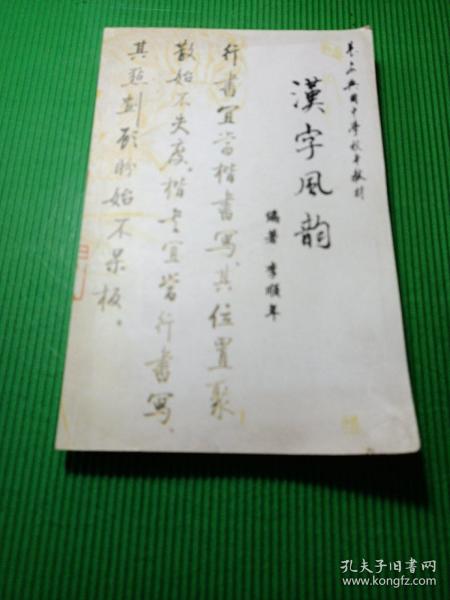 漢字風韵
編著 李順年
行書宜當楷書寫，其位置聚
散始不失度。楷書宜當行書寫，
其點划顧盼始不呆板。
孔夫子旧书网
www.kongfz.com